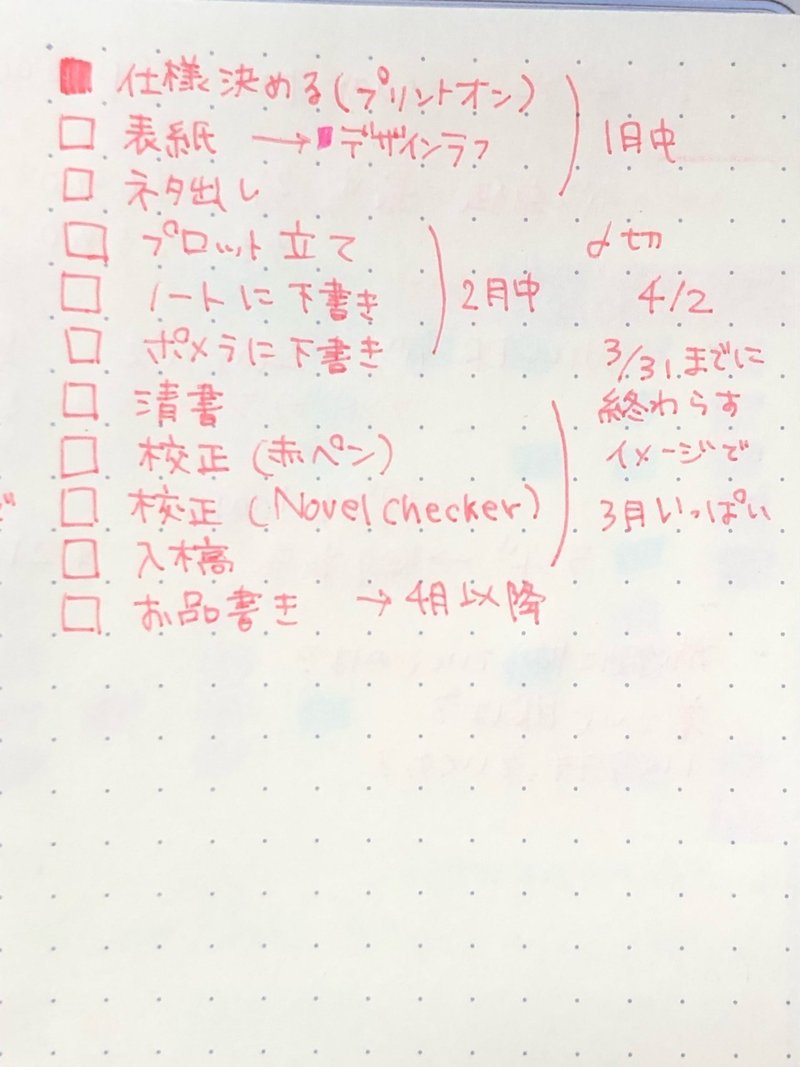 ■ 仕様決める(プリントオン)
□ 表紙 → ■デザインラフ
1月中
□ ネタ出し
□ プロット立て
□ ノートに下書き
2月中
□ ポメラに下書き
□ 清書
□ 校正(赤ペン)
□ 校正(Novel checker)
□ 入稿
□ お品書き → 4月以降
〆切
4/2
3/31までに
終わらす
イメージで
3月いっぱい